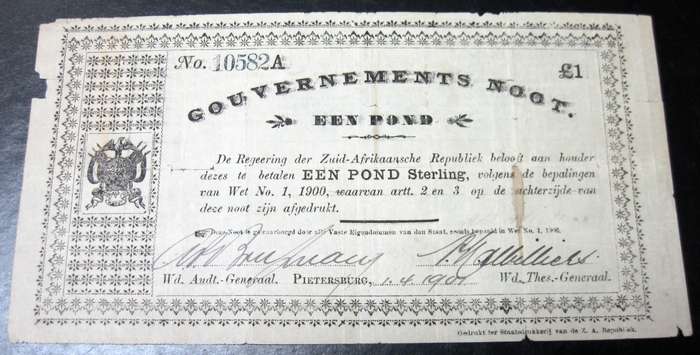 No. 10582A £1
GOUVERNEMENTS NOOT.
EEN POND
De Regeering der Zuid-Afrikaansche Republiek belooft aan houder
dezes te betalen EEN POND Sterling, volgens de bepalingen
van Wet No. 1, 1900, waarvan artt. 2 en 3 op de achterzijde van
deze noot zijn afgedrukt.
Deze Noot is gewaarborgd door alle Vaste Eigendommen van den Staat, zooals bepaald in Wet No. 1, 1900.
Wd. Audt.-Generaal. PIETERSBURG, 1.4.1901 Wd. Thes.-Generaal.
Gedrukt ter Staatsdrukkerij van de Z. A. Republiek.